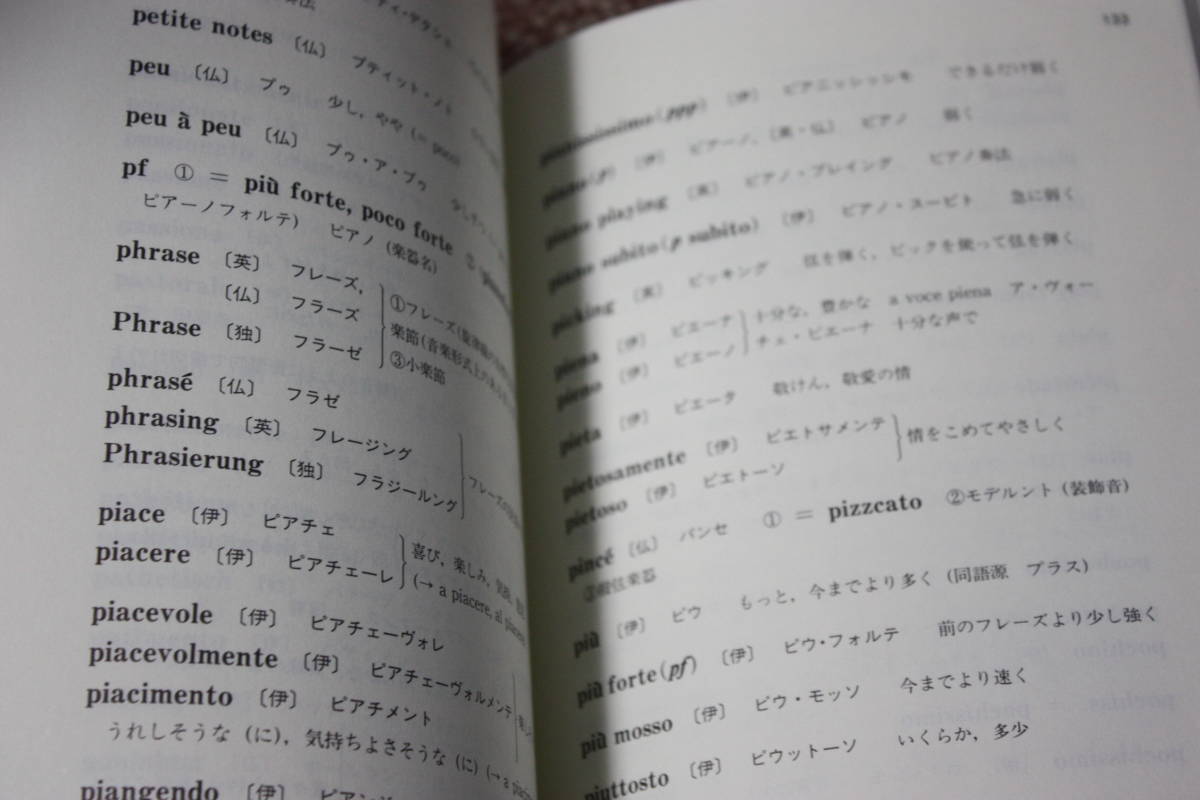 petite notes 〔仏〕 プティット・ノト
peu 〔仏〕 プゥ 少し, やや (= poco)
peu à peu 〔仏〕 プゥ・ア・プゥ
pf ① = più forte, poco forte ②
ピアーノフォルテ) ピアノ (楽器名)
phrase 〔英〕 フレーズ,
〔仏〕 フラーズ
Phrase 〔独〕 フラーゼ
①フレーズ
楽節(音楽形式上の
③小楽節
phrasé 〔仏〕 フラゼ
phrasing 〔英〕 フレージング
Phrasierung 〔独〕 フラジールング
piace 〔伊〕 ピアチェ
piacere 〔伊〕 ピアチェーレ
喜び, 楽しみ,
(→ a piacere, al piacere
piacevole 〔伊〕 ピアチェーヴォレ
piacevolmente 〔伊〕 ピアチェーヴォルメンテ
piacimento 〔伊〕 ピアチメント
うれしそうな (に), 気持ちよさそうな (に) (→ a
piangendo 〔伊〕
133
pianississimo (ppp) 〔伊〕 ピアニッシッシモ できるだけ弱く
piano (p) 〔伊〕 ピアーノ, 〔英・仏〕 ピアノ 弱く
piano playing 〔英〕 ピアノ・プレイング ピアノ奏法
piano subito (p subito) 〔伊〕 ピアノ・スービト 急に弱く
picking 〔英〕 ピッキング 弦を弾く, ピックを使って弦を弾く
piena 〔伊〕 ピエーナ
pieno 〔伊〕 ピエーノ
十分な, 豊かな a voce piena ア・ヴォー
チェ・ピエーナ 十分な声で
pieta 〔伊〕 ピエータ 敬けん, 敬愛の情
pietosamente 〔伊〕 ピエトサメンテ
pietoso 〔伊〕 ピエトーソ
情をこめてやさしく
pincé 〔仏〕 パンセ ① = pizzcato ②モデルント (装飾音)
③撥弦楽器
più 〔伊〕 ピウ もっと, 今までより多く (同語源 プラス)
più forte (pf) 〔伊〕 ピウ・フォルテ 前のフレーズより少し強く
più mosso 〔伊〕 ピウ・モッソ 今までより速く
piuttosto 〔伊〕 ピウットーソ いくらか, 多少